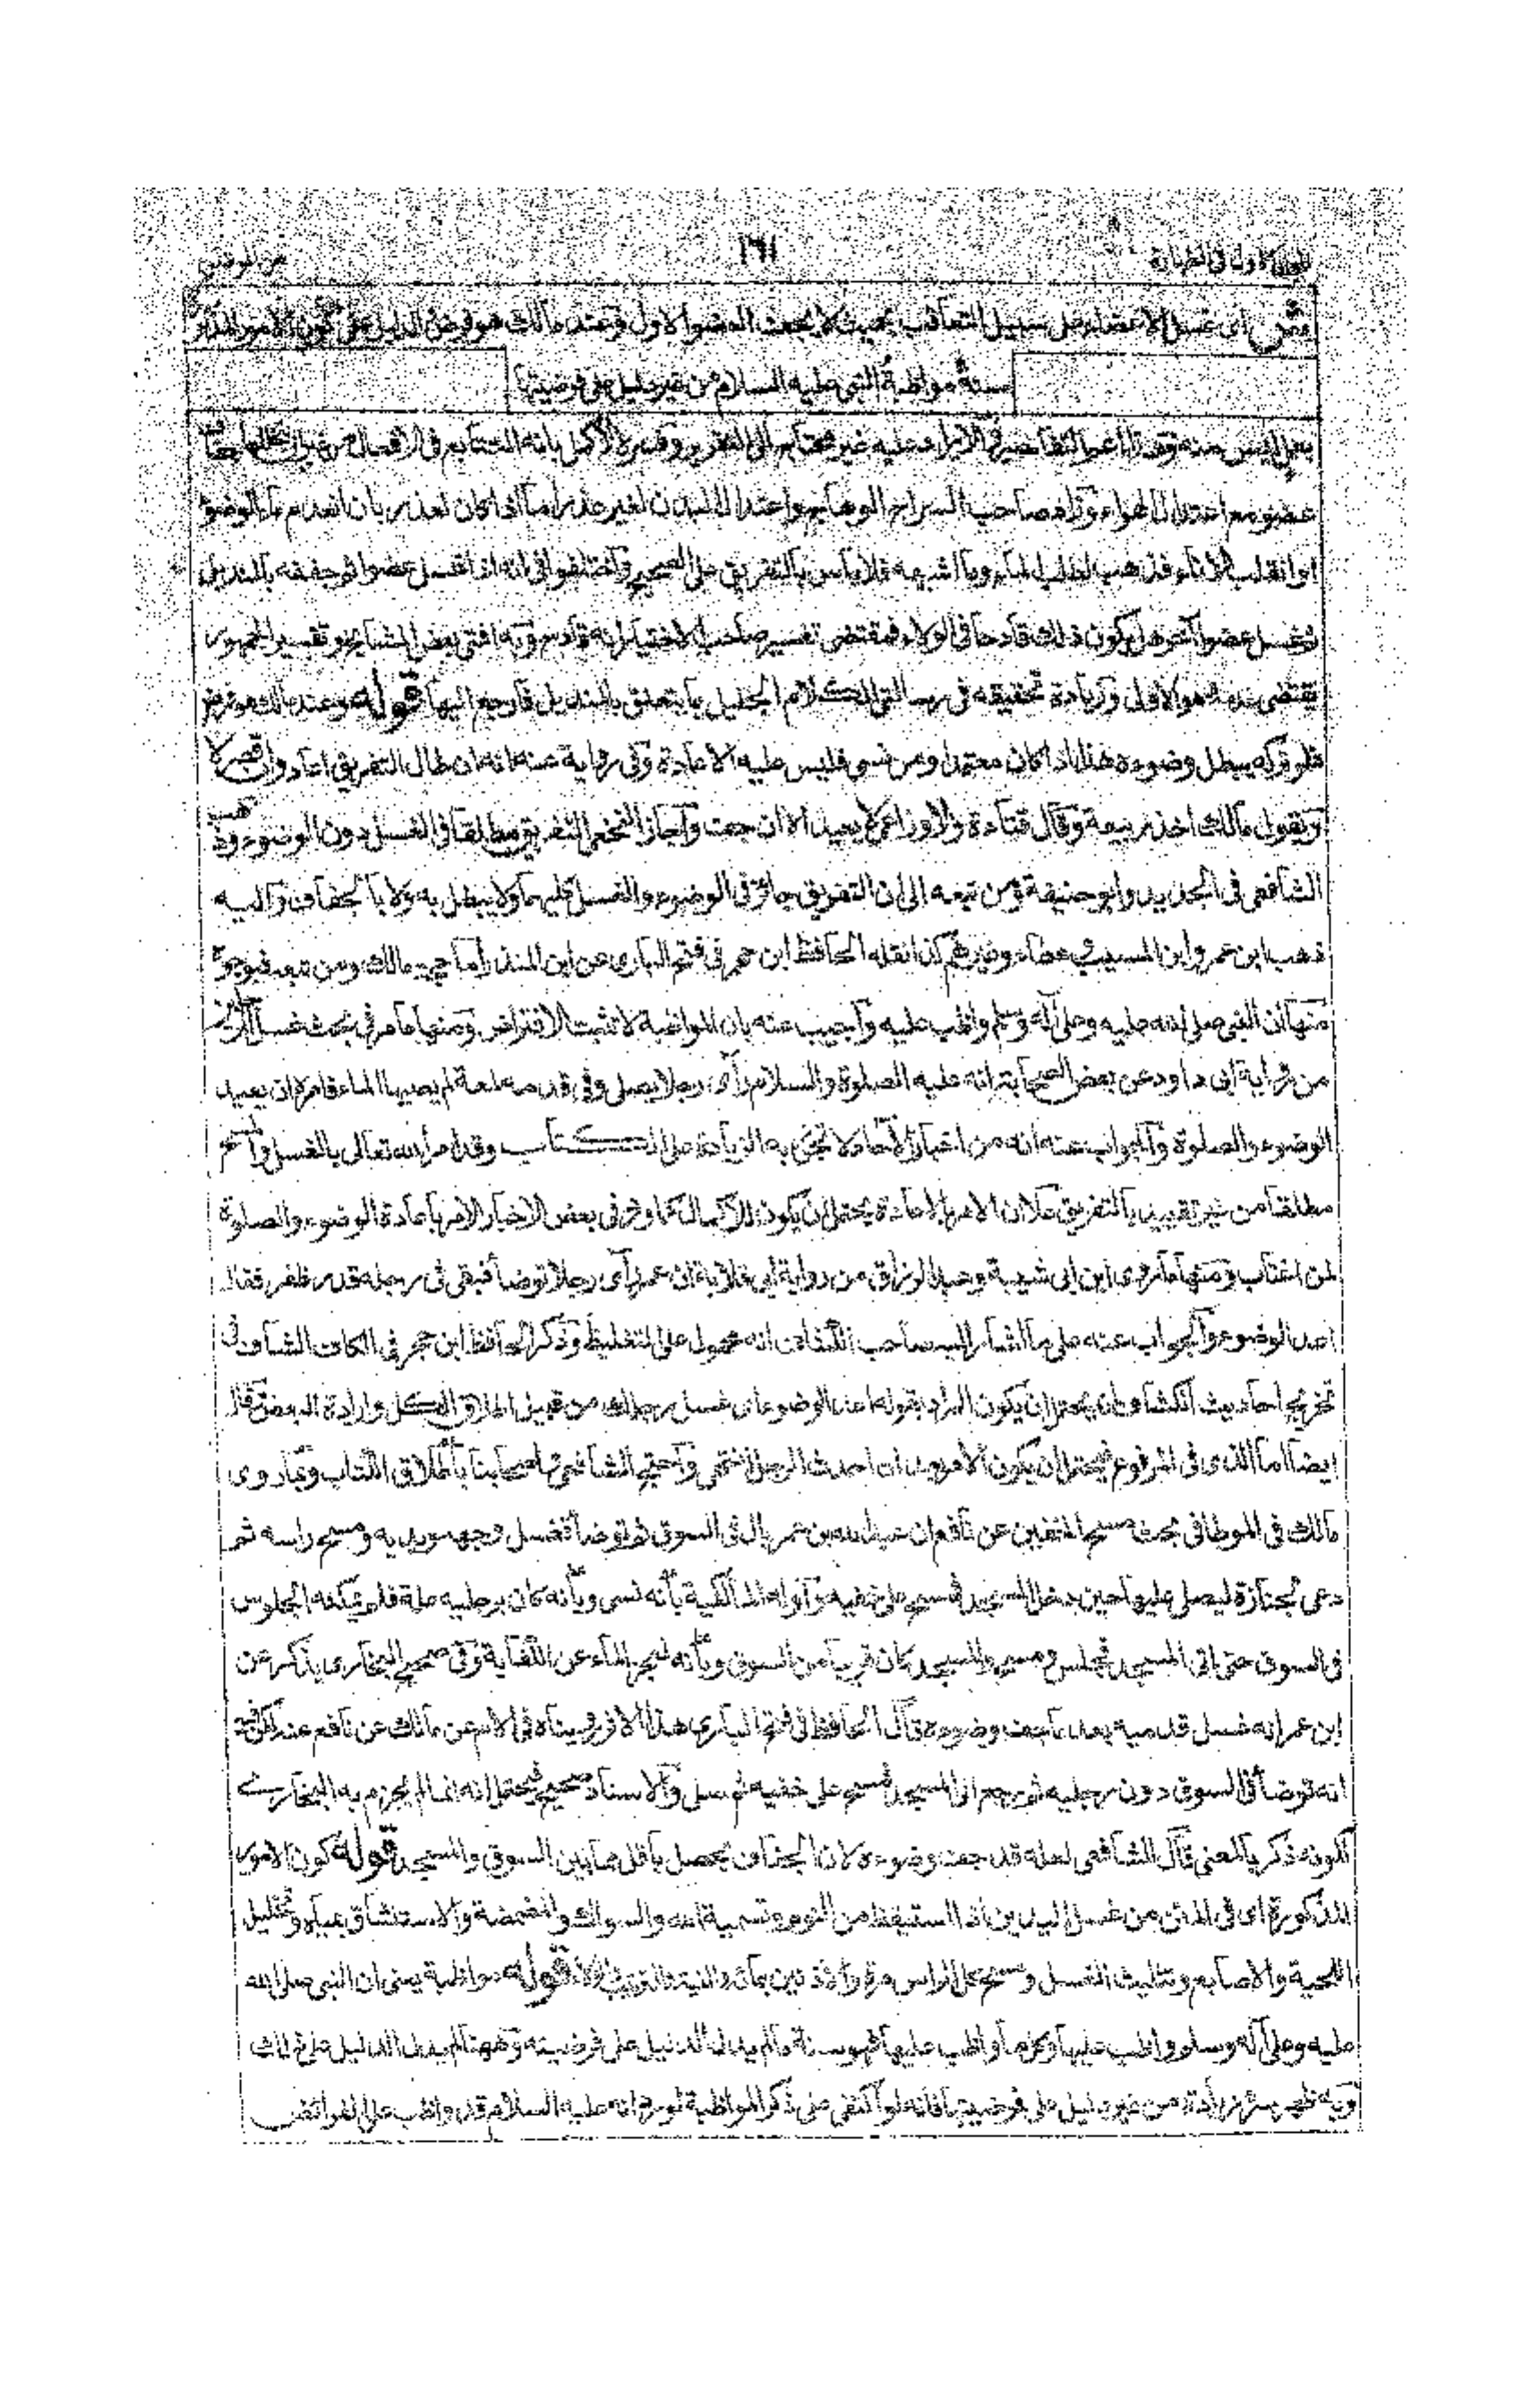 ١٦١
ش اى غسل الاعضاء على سبيل التعاقب بحيث لا يجف العضو الاول وعند مالك هو فرض الدليل على كون الامور المذكورة
سنة مواظبة النبى عليه السلام من غير دليل على فرضيتها
عضو مع اعتدال الهواء وزاد صاحب السراج الوهاج واعتدال البدن لغير عذر اما اذا كان لعذر بان انعدم ماء الوضوء
او انقلب الاناء فذهب لطلب الماء وما اشبهه فلا بأس بالتفريق على الصحيح واختلفوا فى انه اذا غسل عضوا ثم جففه بالمنديل
ثم غسل عضوا آخر هل يكون ذلك قادحا فى الولاء فمقتضى تفسير صاحب الاختيار انه قادح وبه افتى بعض المشايخ وتفسير الجمهور
يقتضى عدمه وهو الاولى وزيادة تحقيقه فى رسالتى الكلام الجليل بما يتعلق بالمنديل فارجع اليها قوله وعند مالك هو فرض
فلو تركه يبطل وضوءه هذا اذا كان معتمدا ومن نسى فليس عليه الاعادة وفى رواية عنه انه ان طال التفريق اعاد وان قصر لا
وبقول مالك اخذ ربيعة وقال قتادة والاوزاعى لا يعيد الا ان جف واجاز النخعى التفريق مطلقا فى الغسل دون الوضوء وذهب
الشافعى فى الجديد وابو حنيفة ومن تبعه الى ان التفريق جائز فى الوضوء والغسل كليهما ولا يبطل به ولا بالجفاف واليه
ذهب ابن عمر وابن المسيب وعطاء وغيرهم كذا نقله الحافظ ابن حجر فى فتح البارى عن ابن المنذر واما حجة مالك ومن تبعه فوجوه
منها ان النبى صلى الله عليه وعلى آله وسلم واظب عليه واجيب عنه بان المواظبة لا تثبت الافتراض ومنها ما مر فى بحث غسل
من رواية ابى داود عن بعض الصحابة انه عليه الصلوة والسلام رأى رجلا يصلى وفى قدمه لمعة لم يصبها الماء فامره ان يعيد
الوضوء والصلوة والجواب عنه انه من اخبار الآحاد لا تجوز به الزيادة على الكتاب وقد امر الله تعالى بالغسل والمسح
مطلقا من غير تقييد بالتفريق علا ان الامر بالاعادة يحتمل ان يكون للاكمال كما ورد فى بعض الاخبار الامر باعادة الوضوء والصلوة
لمن اغتاب ومنها ما روى ابن ابى شيبة وعبد الرزاق من رواية ابى قلابة ان عمر رأى رجلا توضأ فبقى فى رجله قدر ظفر فقال
اعد الوضوء والجواب عنه على ما اشار اليه صاحب الكشاف انه محمول على التغليظ وذكر الحافظ ابن حجر فى الكاف الشاف فى
تخريج احاديث الكشاف انه يحتمل ان يكون المراد بقوله اعد الوضوء اى غسل رجلك من قبيل اطلاق الكل وارادة البعض وقال
ايضا اما الذى فى المرفوع فيحتمل ان يكون الامر بعد ان احدث الرجل انتهى واحتج الشافعى واصحابنا باطلاق الكتاب وبما روى
مالك فى الموطا فى بحث مسح الخفين عن نافع ان عبد الله بن عمر بال فى السوق ثم توضأ فغسل وجهه ويديه ومسح راسه ثم
دعى لجنازة ليصلى عليها حين دخل المسجد فمسح على خفيه واوله المالكية بأنه نسى وبأنه كان برجليه علة فلم يمكنه الجلوس
فى السوق حتى اتى المسجد فجلس ومسح والمسجد كان قريبا من السوق وبأنه لعجز الماء عن الكفاية وفى صحيح البخارى يذكر عن
ابن عمر انه غسل قدميه بعد ما جف وضوءه قال الحافظ فى فتح البارى هذا الاثر رويناه فى الام عن مالك عن نافع عنه لكن فيه
انه توضأ فى السوق دون رجليه ثم رجع الى المسجد فمسح على خفيه ثم صلى والاسناد صحيح فيحتمل انه انما لم يجزم به البخارى
لكونه ذكر بالمعنى قال الشافعى لعله قد جف وضوءه لان الجفاف يحصل باقل مما بين السوق والمسجد قوله كون الامور
المذكورة اى فى المتن من غسل اليدين اذا استيقظ من النوم وتسمية الله والسواك والمضمضة والاستنشاق بمياه وتخليل
اللحية والاصابع وتثليث الغسل ومسح كل الراس مرة والاذنين بمائه والنية والترتيب والولاء قوله مواظبة يعنى ان النبى صلى الله
عليه وعلى آله وسلم واظب عليها وكل ما واظب عليها فهو سنة ما لم يدل الدليل على فرضيته وههنا لم يدل الدليل على ذلك
وبه ظهر سر زيادة من غير دليل على فرضيتها فانه لو اكتفى على ذكر المواظبة لورد انه عليه السلام قد واظب على الفرائض